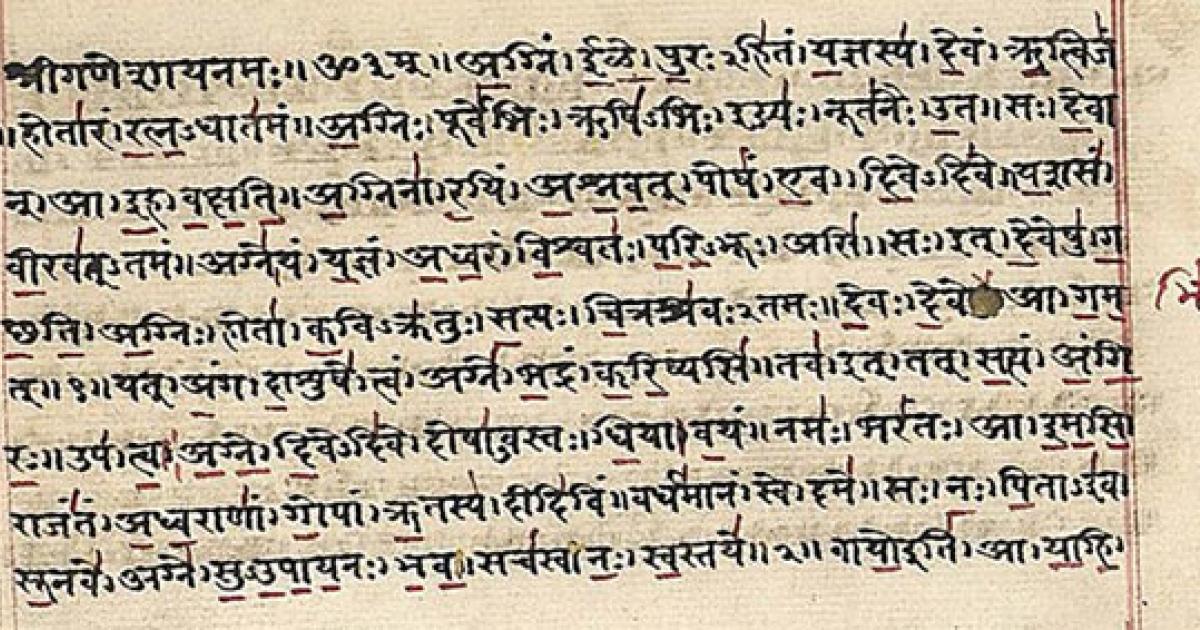 श्रीगणेशायनमः॥ॐ३म्॥अ॒ग्निं।ई॒ळे॒।पु॒रःऽहि॑तं।य॒ज्ञस्य॑।दे॒वं।ऋ॒त्विजं॑
॥होता॑रं।र॒त्न॒ऽधात॑मं॥अ॒ग्निः।पूर्वे॑भिः।ऋषि॑ऽभिः।ईड्यः॑।नूत॑नैः।उ॒त॥सः।दे॒वा
न्।आ।इ॒ह।व॒क्ष॒ति॒॥अ॒ग्निना॑।र॒यिं।अ॒श्न॒व॒त्।पोषं॑।ए॒व।दि॒वेऽदि॑वे॥य॒शसं॑
वी॒रव॑त्ऽतमं॥अग्ने॑।यं।य॒ज्ञं।अ॒ध्व॒रं।वि॒श्वतः॑।प॒रि॒ऽभूः।असि॑॥सः।इत्।दे॒वेषु॑।ग॒
च्छ॒ति॒।अ॒ग्निः।होता॑।क॒विऽक्र॑तुः।स॒त्यः।चि॒त्रश्र॑वःऽतमः॥दे॒वः।दे॒वे आ।ग॒म॒
त्॥१॥यत्।अं॒ग।दा॒शुषे॑।त्वं।अग्ने॑।भ॒द्रं।क॒रि॒ष्यसि॑॥तव॑।इत्।तत्।स॒त्यं।अं॒गि॒
रः॒॥उप॑।त्वा॒।अ॒ग्ने॒।दि॒वेऽदि॑वे।दोषा॑ऽवस्तः।धि॒या।व॒यं॥नमः॑।भरं॑तः।आ।इ॒म॒सि॒
राजं॑तं।अ॒ध्व॒राणां॑।गो॒पां।ऋ॒तस्य॑।दीदि॑विं॥वर्ध॑मानं।स्वे।दमे॑॥सः।नः॒।पि॒ताऽइ॑व।
सू॒नवे॑।अग्ने॑।सु॒ऽउ॒पा॒य॒नः।भ॒व॒॥सच॑स्व।नः॒।स्व॒स्तये॑॥२॥वायो॒इति॑।आ।या॒हि॒।